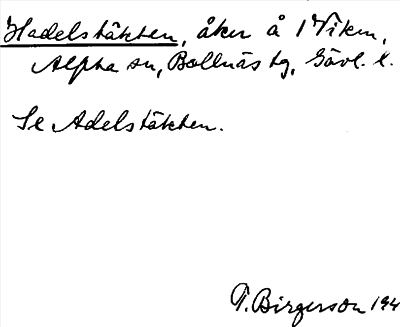 Hadelstäkten, åker å 1 Viken,
Alpha sn, Bollnäs tg, Gävl. l.
Se Adelstäkten.
T. Birgerson 194